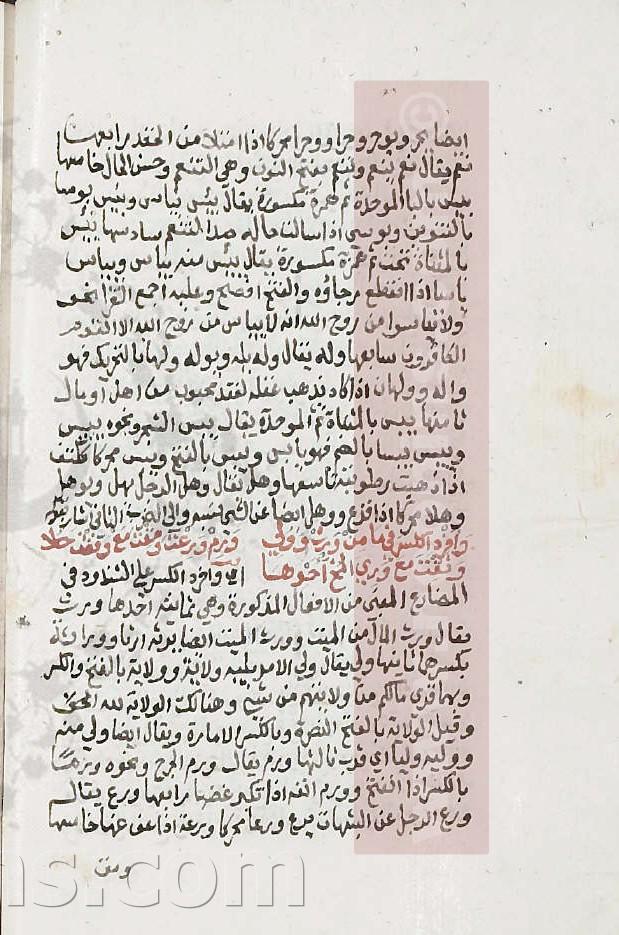 ايضا يحر ويوحر وحرا ووحرا محركا اذا امتلا من الحقد رابعها
نعم يقال نعم ينعم وينعم بفتح النون وهي التنعم وحسن الحال خامسها
بئس بالبا الموحدة ثم همزة مكسورة يقال بئس يبأس ويبئس بوسا
بالتنوين وبوسى اذا سالت حاله ضد التنعم سادسها يئس
بالمثناة تحت ثم همزة مكسورة يقال يئس منه ييأس وييأس
ياسا اذا انقطع رجاؤه والفتح افصح وعليه اجمع القرا نحو
ولا تيأسوا من روح الله انه لا ييأس من روح الله الا القوم
الكافرون سابعها وله يقال وله يله ويوله ولها بالتحريك فهو
واله وولهان اذا كاد يذهب عقله لفقد محبوب من اهل او مال
ثامنها يبس بالمثناة ثم الموحدة يقال يبس الشجر ونحوه ييبس
وييبس يبسا بالضم فهو يابس ويبس بالفتح ويبس محركا ككتف
اذا ذهبت رطوبته تاسعها وهل يقال وهل الرجل يهل ويوهل
وهلا محركا اذا فزع ووهل ايضا عن الشي نسيه والى الضرب الثاني اشار بقوله
وافرد الكسر فيما من ورث وولي ورم ورعت ومقت مع وفقت حلا
وثقت مع وري المخ احوها اي وافرد الكسر على الشذوذ في
المضارع المبني من الافعال المذكورة وهي ثمانية احدها ورث
يقال ورث المال من الميت وورث الميت ايضا يرثه ارثا ووراثة
بكسرها ثانيها ولي يقال ولي الامر يليه ولاية وولاية بالفتح والكسر
وبهما قرئ ما لكم من ولايتهم من شيء وهنالك الولاية لله الحق
وقيل الولاية بالفتح النصرة وبالكسر الامارة ويقال ايضا ولي منه
ووليه وليا اي قرب ثالثها ورم يقال ورم الجرح ونحوه يرم
بالكسر اذا انتفخ وورم انفه اذا تكبر غضبا رابعها ورع يقال
ورع الرجل عن الشبهات يرع ورعا محركا ورعة اذا عف عنها خامسها
ومق
ns.com